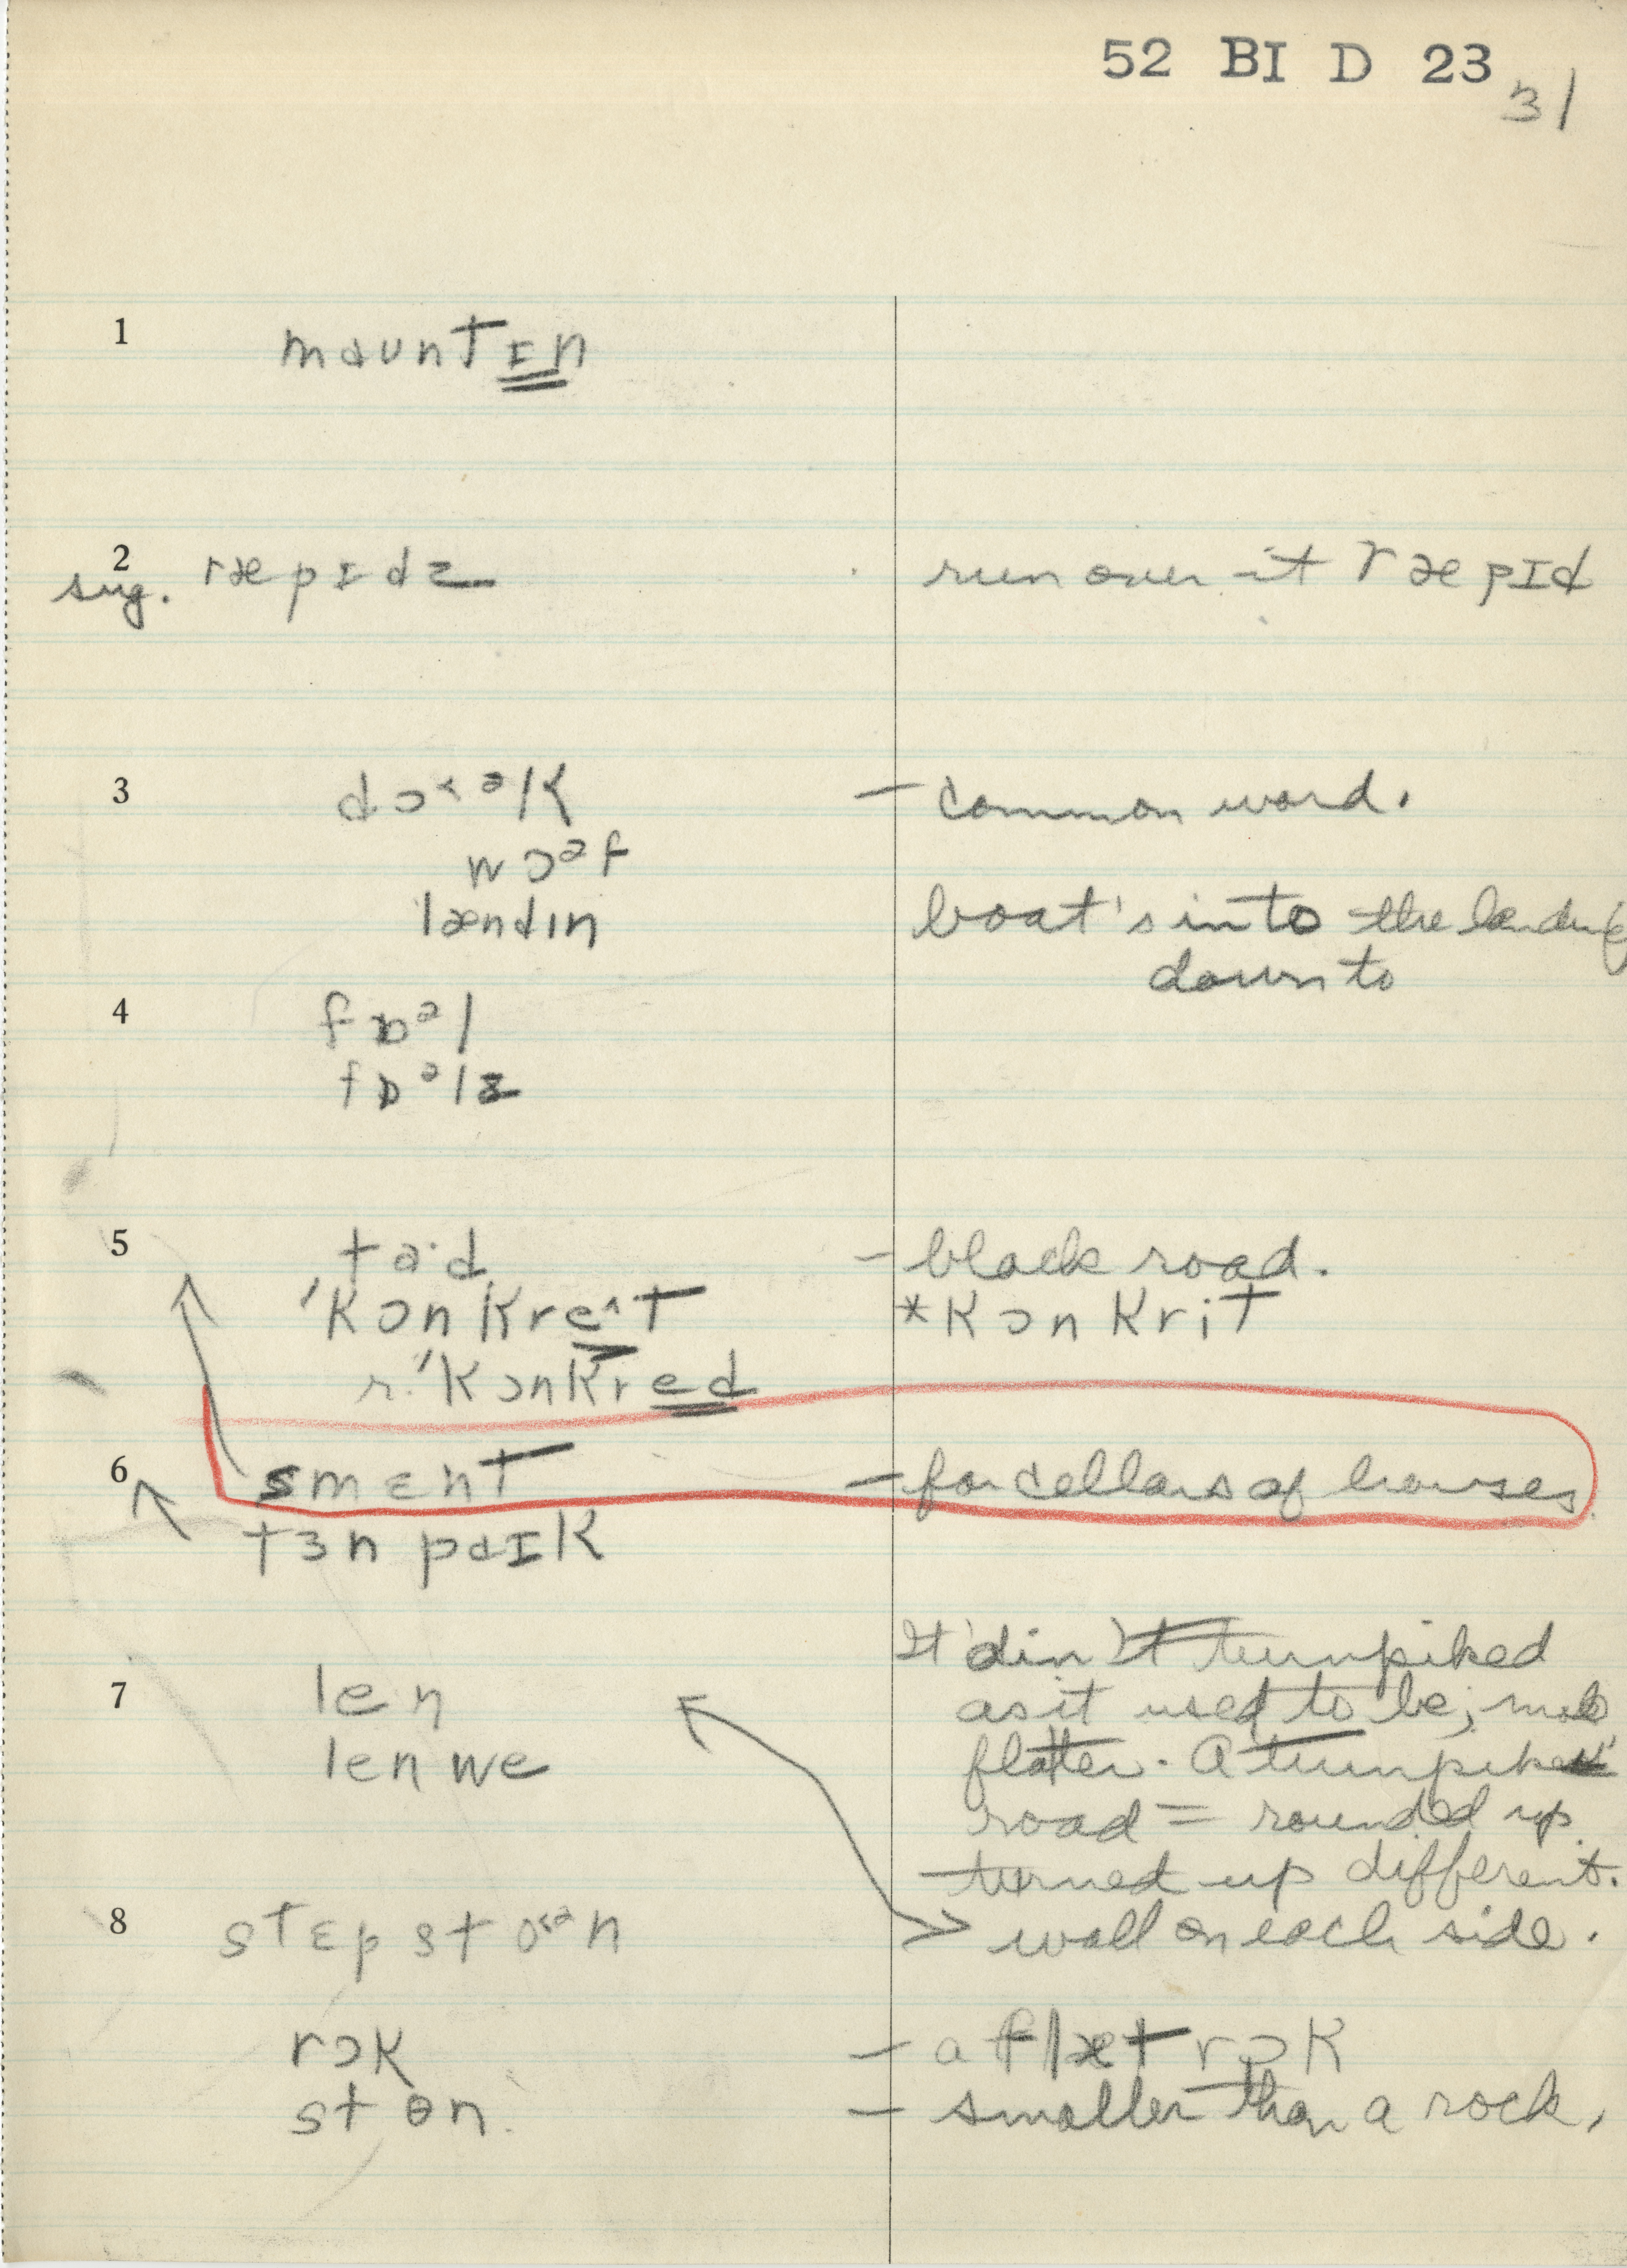 52 BI D 23
31
1 mauntɪn
2 sug. ræpɪdz run over it ræpɪd
3 dɔ˂ᵊk – common word.
wɔᵊf
lændɪn boat's into the landing
down to
4 fɒᵊl
fɒᵊlz
5 ta·d – black road.
'kɔnkre^t *kɔnkrit
r. 'kɔnkred
6 smɛnt – for cellars of houses
tɜnpaɪk
It din't turnpiked
7 len as it used to be; made
len we flatter. A turnpike
road = rounded up
turned up different.
8 stɛpstoᵊn wall on each side.
rɔk – a flæt rɔk
stɵn – smaller than a rock,